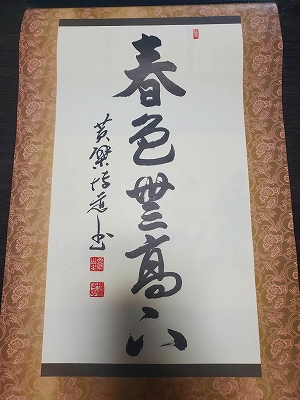 春色無高下
黄檗
書